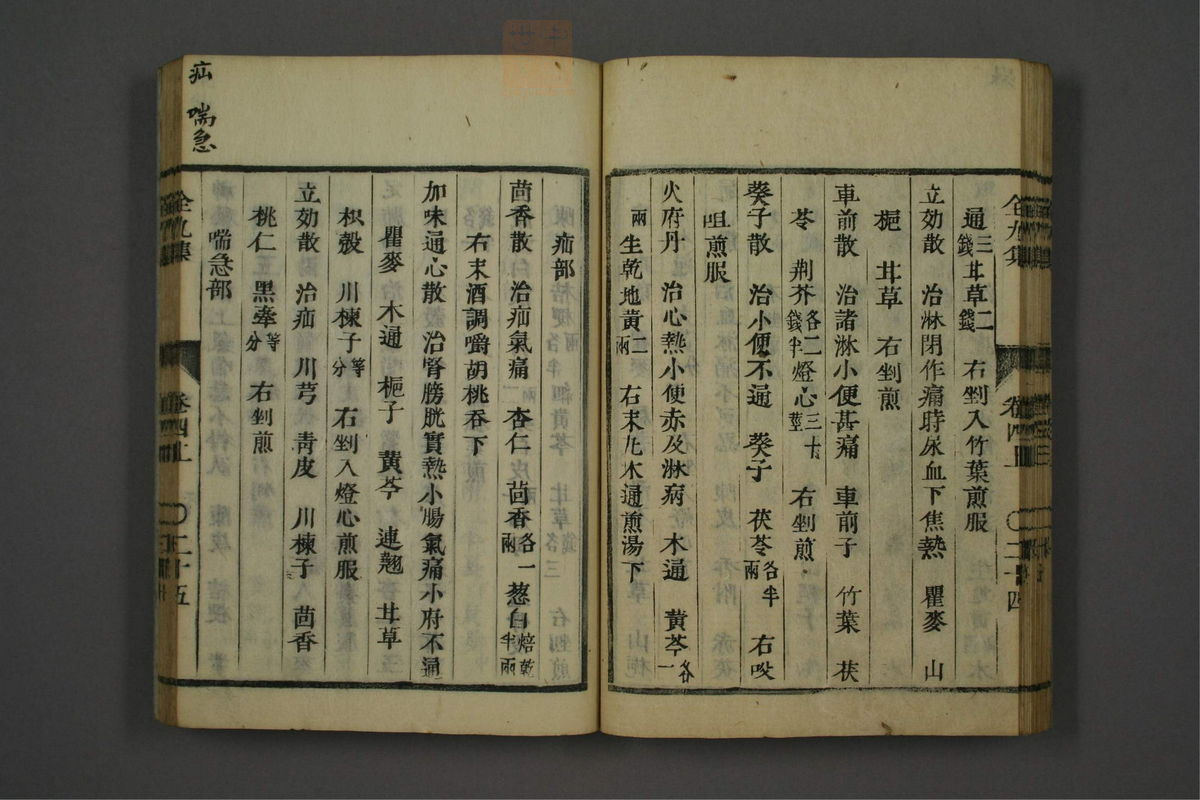 全九集 卷四上 〇二十四
通三錢 甘草二錢 右剉入竹葉煎服
立効散 治淋閉作痛時尿血下焦熱 瞿麥 山
梔 甘草 右剉煎
車前散 治諸淋小便甚痛 車前子 竹葉 茯
苓 荆芥各二錢半 燈心三十莖 右剉煎
葵子散 治小便不通 葵子 茯苓各半兩 右㕮
咀煎服
火府丹 治心熱小便赤及淋病 木通 黄芩各一
兩 生乾地黄二兩 右末丸木通煎湯下
疝部
茴香散 治疝氣痛 杏仁 茴香各一兩 葱白焙乾半兩
右末酒調嚼胡桃吞下
加味通心散 治腎膀胱實熱小腸氣痛小府不通
瞿麥 木通 梔子 黄芩 連翹 甘草
枳殼 川楝子等分 右剉入燈心煎服
立効散 治疝 川芎 靑皮 川楝子 茴香
桃仁 黑牽等分 右剉煎
喘急部
全九集 卷四上 〇二十五
疝 喘急